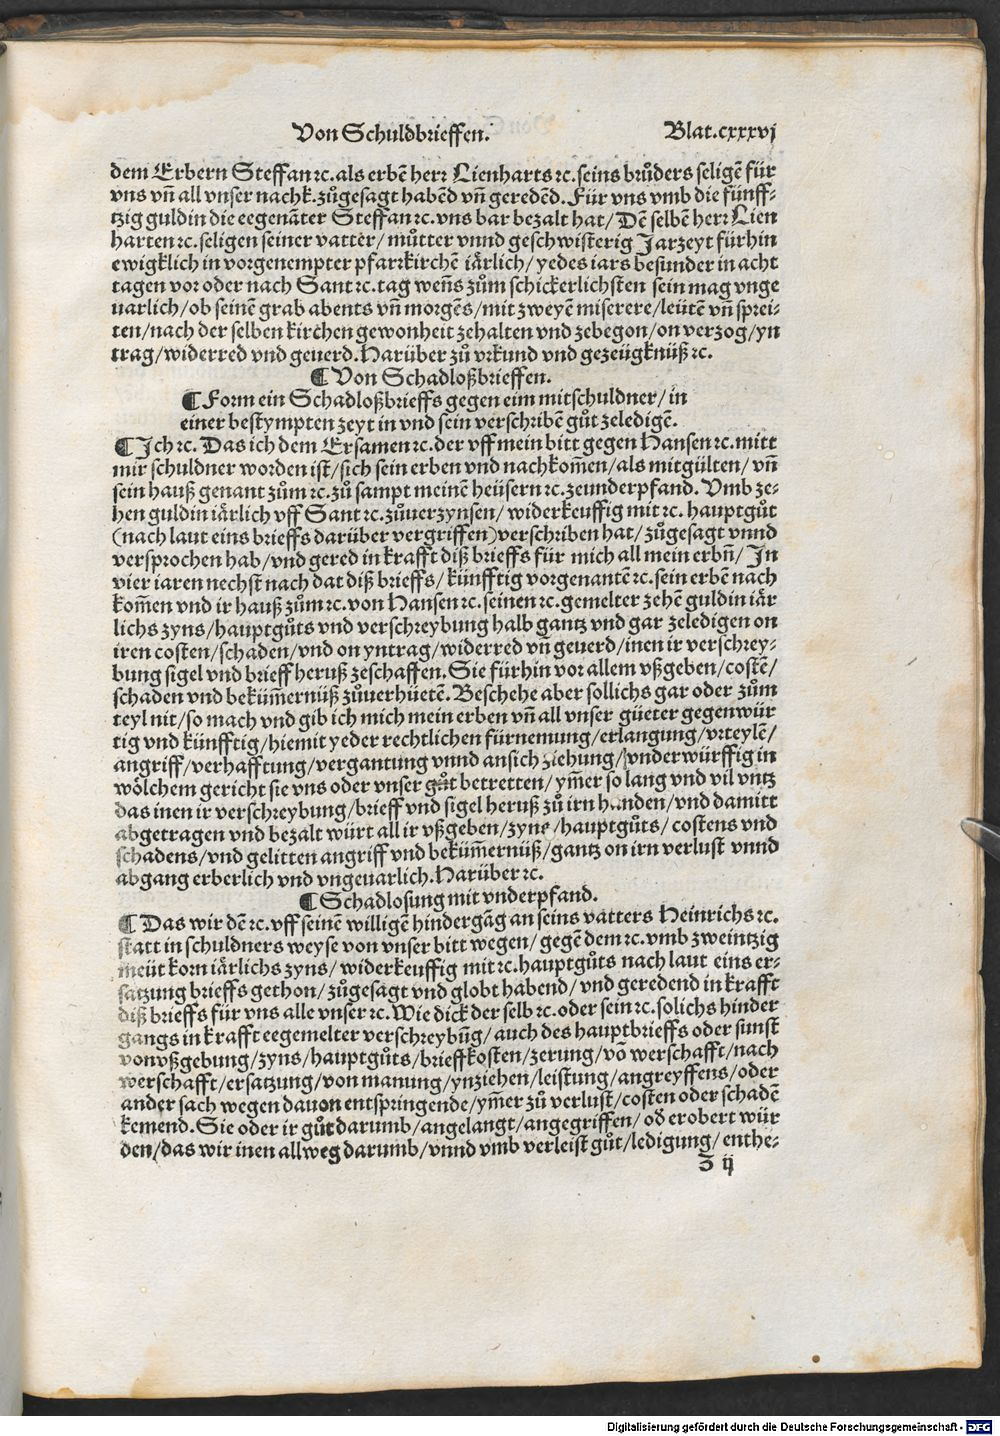 Von Schuldbrieffen. Blat.cxxxvj
dem Erbern Steffan ꝛc. als erbẽ herꝛ Lienharts ꝛc. seins brůders seligẽ für
vns vñ all vnser nachk. zůgesagt habẽd vñ geredẽd. Für vns vmb die fünff⸗
tzig guldin die eegenãter Steffan ꝛc. vns bar bezalt hat/ Dẽ selbẽ herꝛ Lien
harten ꝛc. seligen seiner vatter/ můtter vnnd geschwisterig Jarzeyt fürhin
ewigklich in vorgenempter pfarrkirchẽ iärlich/ yedes iars besunder in acht
tagen vor oder nach Sant ꝛc. tag weñs zům schickerlichsten sein mag vnge
uarlich/ ob seinẽ grab abents vñ morgẽs/ mit zweyẽ miserere/ leütẽ vñ sprei⸗
ten/ nach der selben kirchen gewonheit zehalten vnd zebegon/ on verzog/ yn
trag/ widerred vnd geuerd. Harüber zů vrkund vnd gezeügknüß ꝛc.
¶ Von Schadloßbrieffen.
¶ Form ein Schadloßbrieffs gegen eim mitschuldner/ in
einer bestympten zeyt in vnd sein verschribẽ gůt zeledigẽ.
¶ Jch ꝛc. Das ich dem Ersamen ꝛc. der vff mein bitt gegen Hansen ꝛc. mitt
mir schuldner worden ist/ sich sein erben vnd nachkom̃en/ als mitgülten/ vñ
sein hauß genant zům ꝛc. zů sampt meinẽ heüsern ꝛc. zeunderpfand. Vmb ze⸗
hen guldin iärlich vff Sant ꝛc. zůuerzynsen/ widerkeuffig mit ꝛc. hauptgůt
(nach laut eins brieffs darüber vergriffen) verschriben hat/ zůgesagt vnnd
versprochen hab/ vnd gered in krafft diß brieffs für mich all mein erbñ/ Jn
vier iaren nechst nach dat diß brieffs/ künfftig vorgenantẽ ꝛc. sein erbẽ nach
kom̃en vnd ir hauß zům ꝛc. von Hansen ꝛc. seinen ꝛc. gemelter zehẽ guldin iär
lichs zyns/ hauptgůts vnd verschreybung halb gantz vnd gar zeledigen on
iren costen/ schaden/ vnd on yntrag/ widerred vñ geuerd/ inen ir verschrey⸗
bung sigel vnd brieff heruß zeschaffen. Sie fürhin vor allem vßgeben/ costẽ/
schaden vnd beküm̃ernüß zůuerhüetẽ. Beschehe aber sollichs gar oder zům
teyl nit/ so mach vnd gib ich mich mein erben vñ all vnser güeter gegenwür
tig vnd künfftig/ hiemit yeder rechtlichen fürnemung/ erlangung/ vrteylẽ/
angriff/ verhafftung/ vergantung vnnd ansich ziehung/ vnderwürffig in
wölchem gericht sie vns oder vnser gůt betretten/ ym̃er so lang vnd vil vntz
das inen ir verschreybung/ brieff vnd sigel heruß zů irn handen/ vnd damitt
abgetragen vnd bezalt würt all ir vßgeben/ zyns/ hauptgůts/ costens vnd
schadens/ vnd gelitten angriff vnd beküm̃ernüß/ gantz on irn verlust vnnd
abgang erberlich vnd vngeuarlich. Harüber ꝛc.
¶ Schadlosung mit vnderpfand.
¶ Das wir dẽ ꝛc. vff seinẽ willigẽ hindergãg an seins vatters Heinrichs ꝛc.
statt in schuldners weyse von vnser bitt wegen/ gegẽ dem ꝛc. vmb zweintzig
meüt korn iärlichs zyns/ widerkeuffig mit ꝛc. hauptgůts nach laut eins er⸗
satzung brieffs gethon/ zůgesagt vnd globt habend/ vnd geredend in krafft
diß brieffs für vns alle vnser ꝛc. Wie dick der selb ꝛc. oder sein ꝛc. solichs hinder
gangs in krafft eegemelter verschreybũg/ auch des hauptbrieffs oder sunst
von vßgebung/ zyns/ hauptgůts/ brieffkosten/ zerung/ võ werschafft/ nach
werschafft/ ersatzung/ von manung/ ynziehen/ leistung/ angreyffens/ oder
ander sach wegen dauon entspringende/ ym̃er zů verlust/ costen oder schadẽ
kemend. Sie oder ir gůt darumb/ angelangt/ angegriffen/ oď erobert wür
den/ das wir inen allweg darumb/ vnnd vmb verleist gůt/ ledigung/ enthe⸗
Z ij
Digitalisierung gefördert durch die Deutsche Forschungsgemeinschaft - DFG